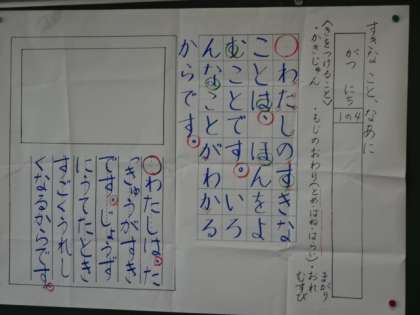 すきなこと、なあに
がつ にち
1の4
<きをつけること>
・かきじゅん ・もじのおわり(とめ・はね・はらい)・おれ
まがり
むすび
わたしのすきな
ことは、ほんをよ
むことです。いろ
んなことがわかる
からです。
わたしは、た
っきゅうがすき
です。じょうず
にうてたとき
すごくうれし
くなるからです。